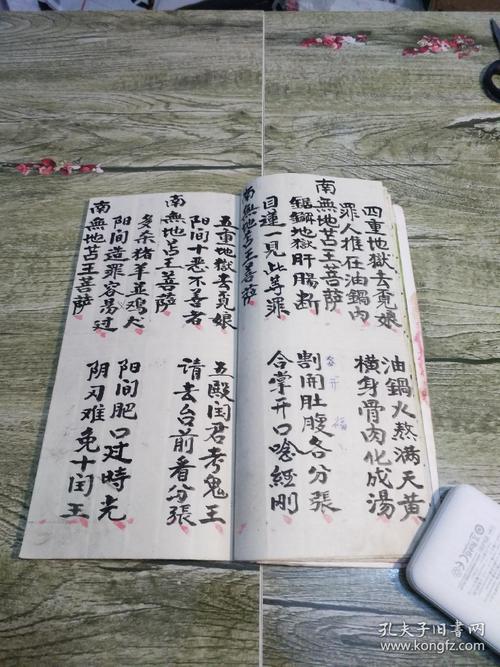 四重地獄去覓娘 油鍋火熬滿天黃
罪人推在油鍋內 橫身骨肉化成湯
南無地苫王菩萨
鋸觧地獄肝腸断 割開肚腹各分張
目蓮一見此等罪 合掌开口唸經刚
南無地苫王菩萨
五重地獄去覓娘 五殿闰君考鬼王
阳间十恶不善者 請去台前看分張
南無地苫王菩萨
多杀猪羊並鸡犬 阳间肥口过時光
阳间造罪容易过 阴司难免十闰王
南無地苫王菩萨
各开
孔夫子旧書网
www.kongfz.com